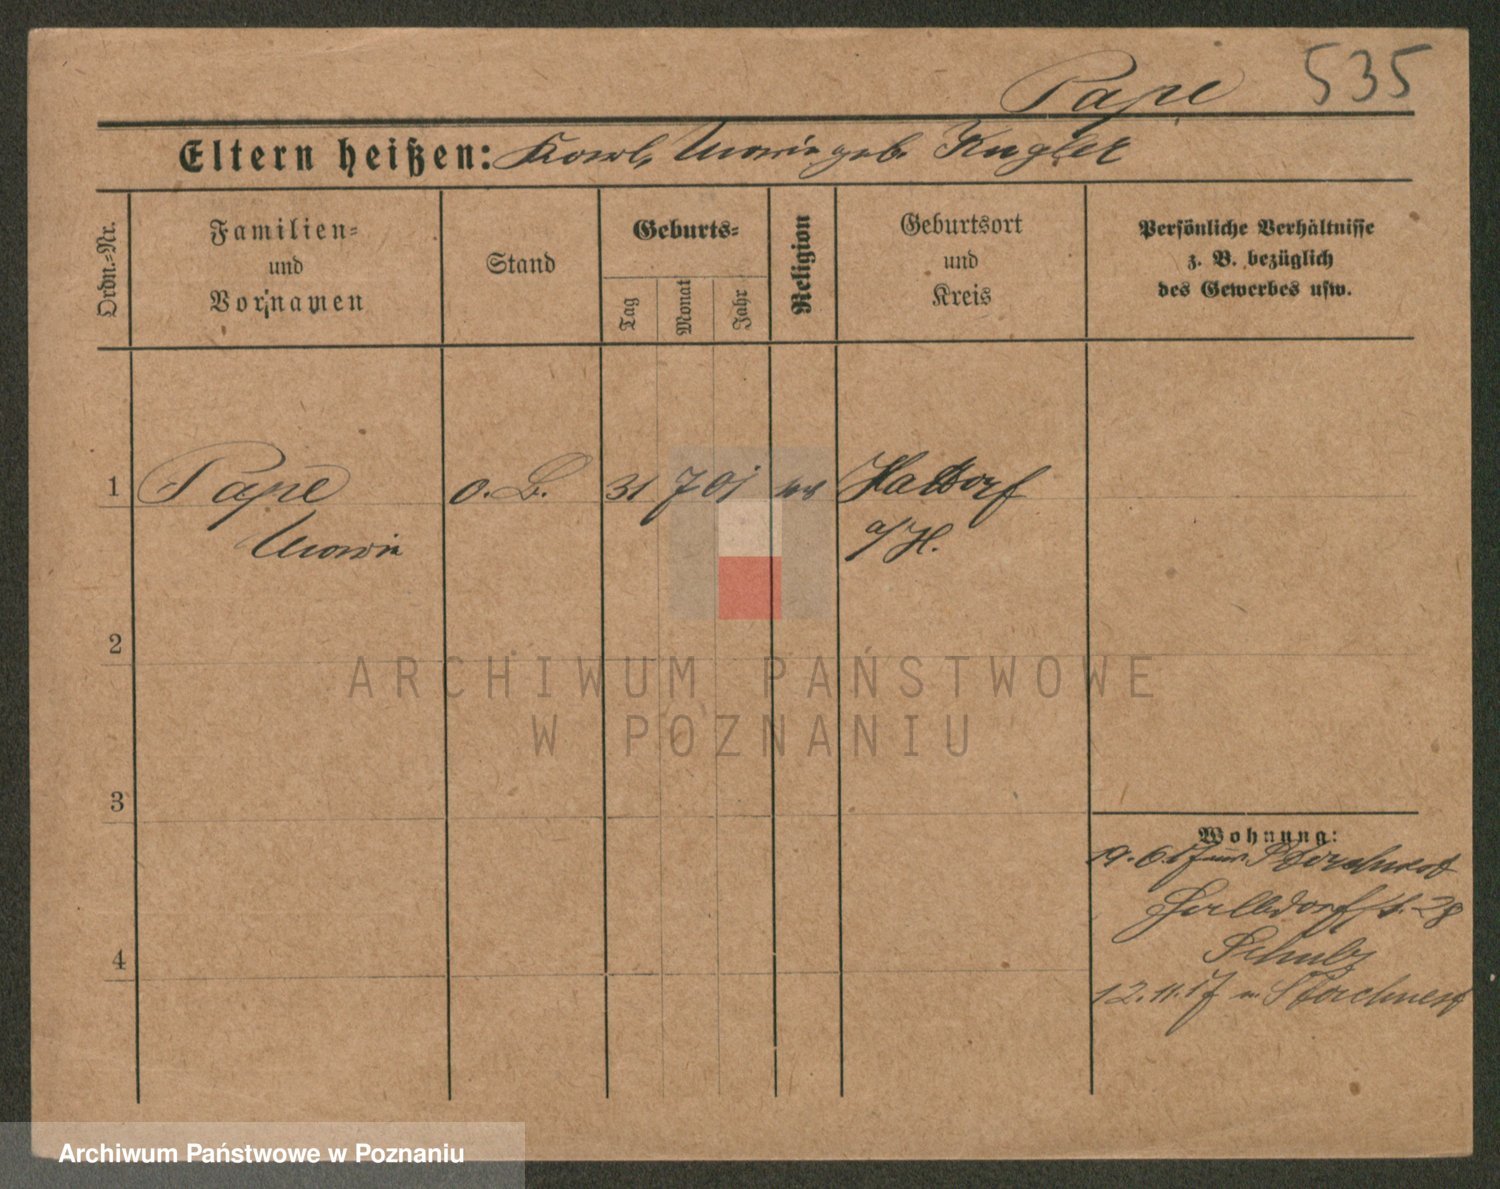 Pape 535
Eltern heißen: Karl, Maria geb. Kugler
Ordn.-Nr.
Familien-
und
Vornamen
Stand
Geburts-
Tag
Monat
Jahr
Religion
Geburtsort
und
Kreis
Persönliche Verhältnisse
z. B. bezüglich
des Gewerbes usw.
1 Pape o. B. 31 7 01
Maria a/H.
2
ARCHIWUM PAŃSTWOWE
W POZNANIU
3
Wohnung:
19.6.17 Storchnest
28
Schulz
4
12.11.17 n. Storchnest
Archiwum Państwowe w Poznaniu